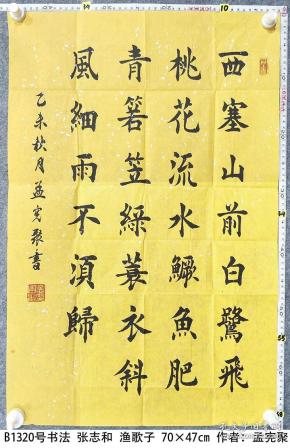 西塞山前白鷺飛
桃花流水鱖魚肥
青箬笠綠蓑衣斜
風細雨不須歸
乙未秋月孟宪聚書
B1320号书法 张志和 渔歌子 70×47cm 作者：孟宪聚